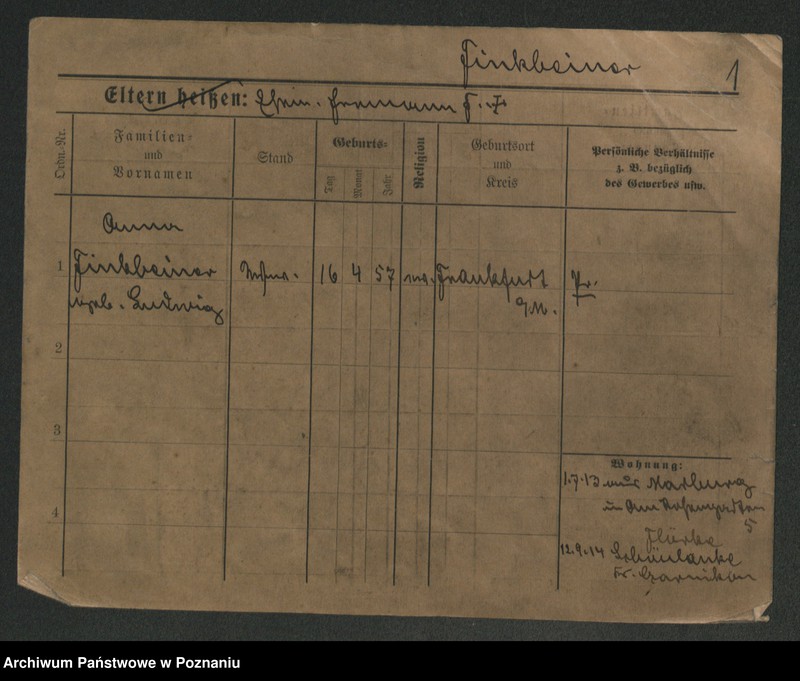 Finkbeiner 1
Eltern heißen: Ehem. Hermann F. †
Ordn.-Nr.
Familien-
und
Vornamen
Stand
Geburts-
Tag
Monat
Jahr
Religion
Geburtsort
und
Kreis
Persönliche Verhältnisse
z. B. bezüglich
des Gewerbes usw.
Anna
1 Finkbeiner Wwe. 16 4 57 ev. Frankfurt Pr.
geb. Ludwig a/M.
2
3
4
Wohnung:
1.7.13 aus Marburg
Am Rosengarten
5
12.9.14 Schönlanke
Kr. Czarnikau
Archiwum Państwowe w Poznaniu